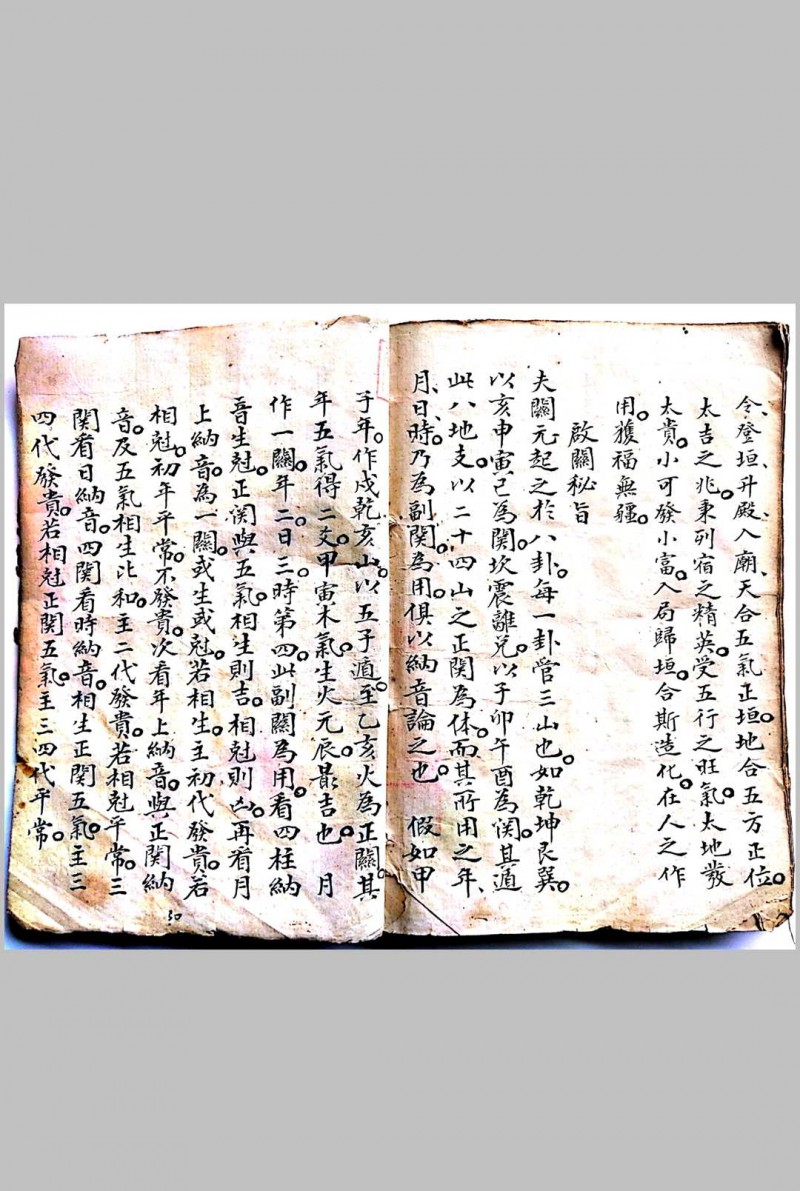 令、登垣、升殿、入廟、天合五氣正垣。地合五方正位。
太吉之兆。秉列宿之精英。受五行之旺氣。太地發
太貴。小可發小富。入局歸垣。合斯造化。在人之作
用。獲福無疆。
啟關秘旨
夫關元起之於八卦。每一卦管三山也。如乾坤艮巽。
以亥申寅巳為関。坎震離兌。以子卯午酉為関。其遁
此八地支。以二十四山之正関為体。而其所用之年、
月、日、時。乃為副関。為用。俱以納音論之也。 假如甲
子年。作戌乾亥山。以五子遁。至乙亥火為正關。其
年五氣得二支。甲寅木氣。生火元辰。最吉也。 月
作一關。年二。日三。時第四。此副關為用。看四柱納
音生尅。正関與五氣。相生則吉。相尅則凶。再看月
上納音。為一關。或生或尅。若相生。主初代發貴。若
相尅。初年平常。不發貴。次看年上納音。與正関納
音。及五氣相生比和。主二代發貴。若相尅平常。三
関看日納音。四関看時納音。相生正関五氣。主三
四代發貴。若相尅正関五氣。主三四代平常。
30